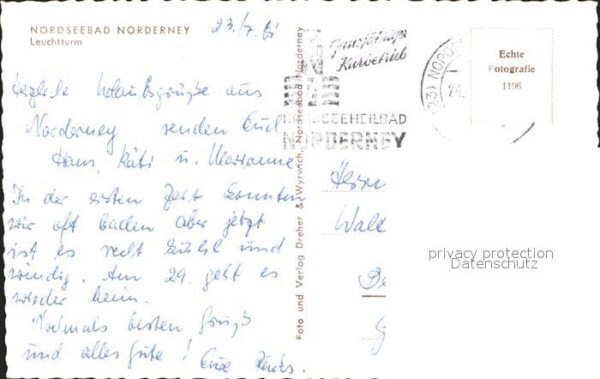 NORDSEEBAD NORDERNEY
Leuchtturm
23/7. 61
Herzliche Urlaubsgrüße aus
Norderney senden Euch
Hans, Käti u. Marianne
In der ersten Zeit konnten
wir oft baden aber jetzt
ist es recht kühl und
windig. Am 29. geht es
wieder heim.
Nochmals besten Gruß
und alles Gute! Eure
Foto und Verlag Dreher & Wyrwich, Nordseebad Norderney
Ganzjähriger
Kurbetrieb
NORDSEEHEILBAD
NORDERNEY
(23) NORD
24.
Echte
Fotografie
1196
Herrn
Wal
privacy protection
Datenschutz